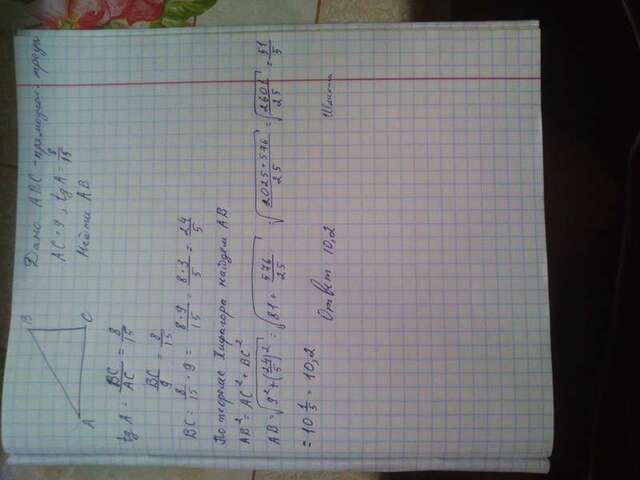 B
A
C
Дано ABC - прямоугол. треуг
AC = 9, tg A = 8/15
Найти AB
tg A = BC/AC = 8/15
BC/9 = 8/15
BC = 8/15 · 9 = 8·9/15 = 8·3/5 = 24/5
По теореме Пифагора найдем AB
AB² = AC² + BC²
AB = √(9² + (24/5)²) = √(81 + 576/25) = √((2025+576)/25) = √(2601/25) = 51/5
= 10 1/5 = 10,2
Ответ 10,2